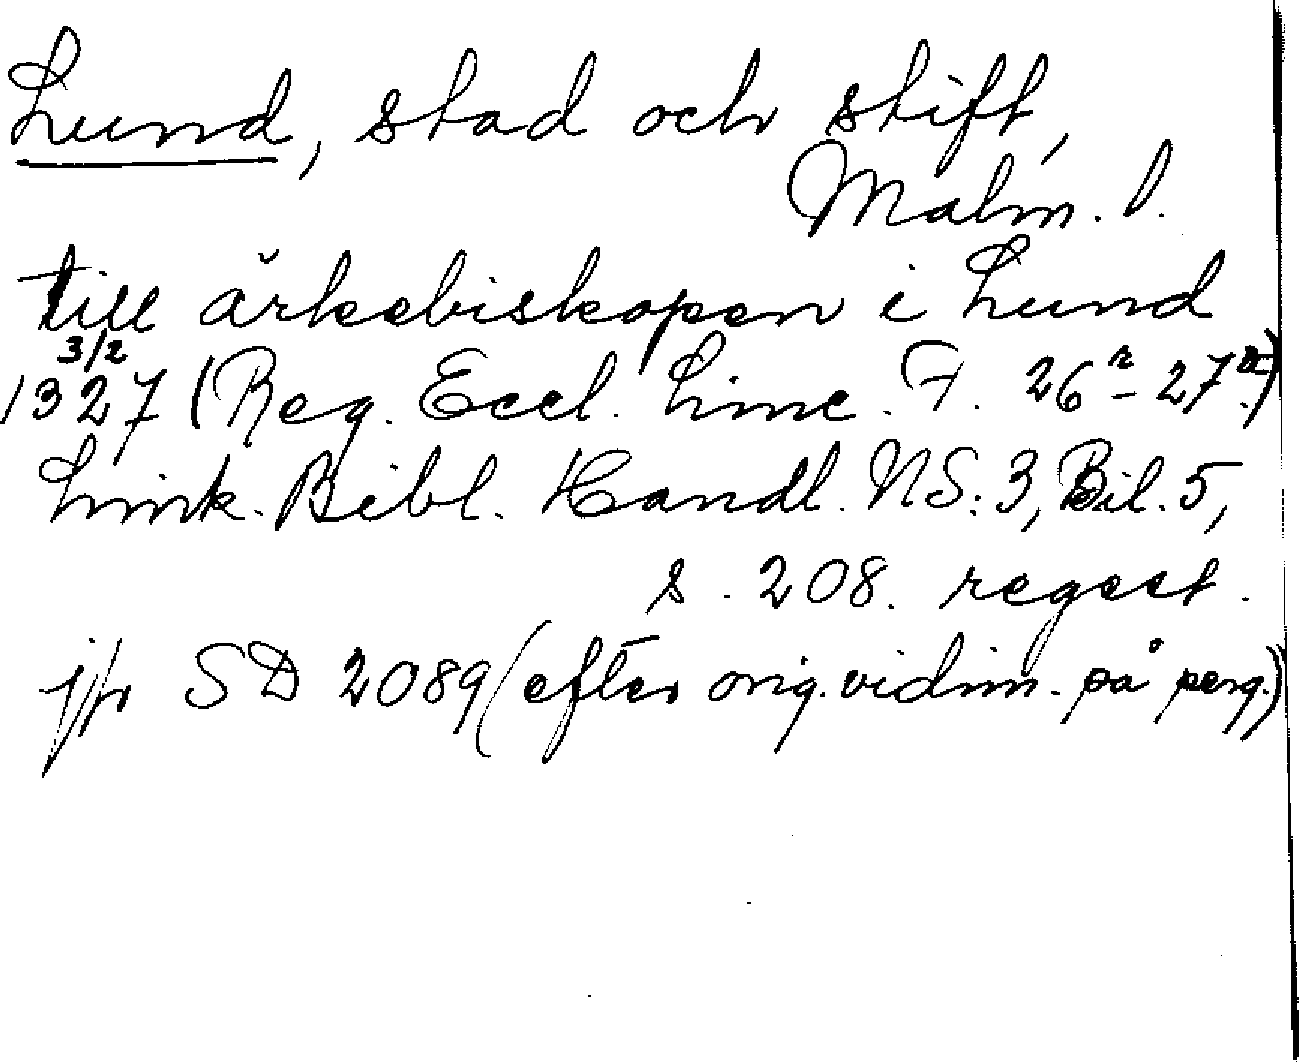 Lund, stad och stift,
Malm. l.
till ärkebiskopen i Lund
3/2
1327 (Reg. Eccl. Linc. F. 26r-27r.)
Link. Bibl. Handl. NS: 3, Bil. 5,
s. 208. regest.
jfr SD 2089 (efter orig. vidim. på perg.)